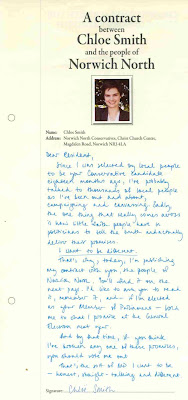 A contract
between
Chloe Smith
and the people of
Norwich North
Name: Chloe Smith
Address: Norwich North Conservatives, Christ Church Centre,
Magdalen Road, Norwich NR3 4LA
Dear Resident,
Since I was selected by local people
to be your Conservative candidate
eighteen months ago, I've probably
talked to thousands of local people
as I've been out and about,
campaigning and canvassing. Sadly
the one thing that really comes across
is how little faith people have in
politicians to tell the truth and actually
deliver their promises.
I want to be different.
That's why, today, I'm publishing
my contract with you, the people of
Norwich North. You'll find it on the
next page. I'd like to ask you to read
it, remember it, and - if I'm elected
as your Member of Parliament - hold
me to that promise at the General
Election next year.
And by that time, if you think
I've broken any one of these promises,
you should vote me out.
That's the sort of MP I want to be
- honest, straight-talking and different.
Signature: Chloe Smith